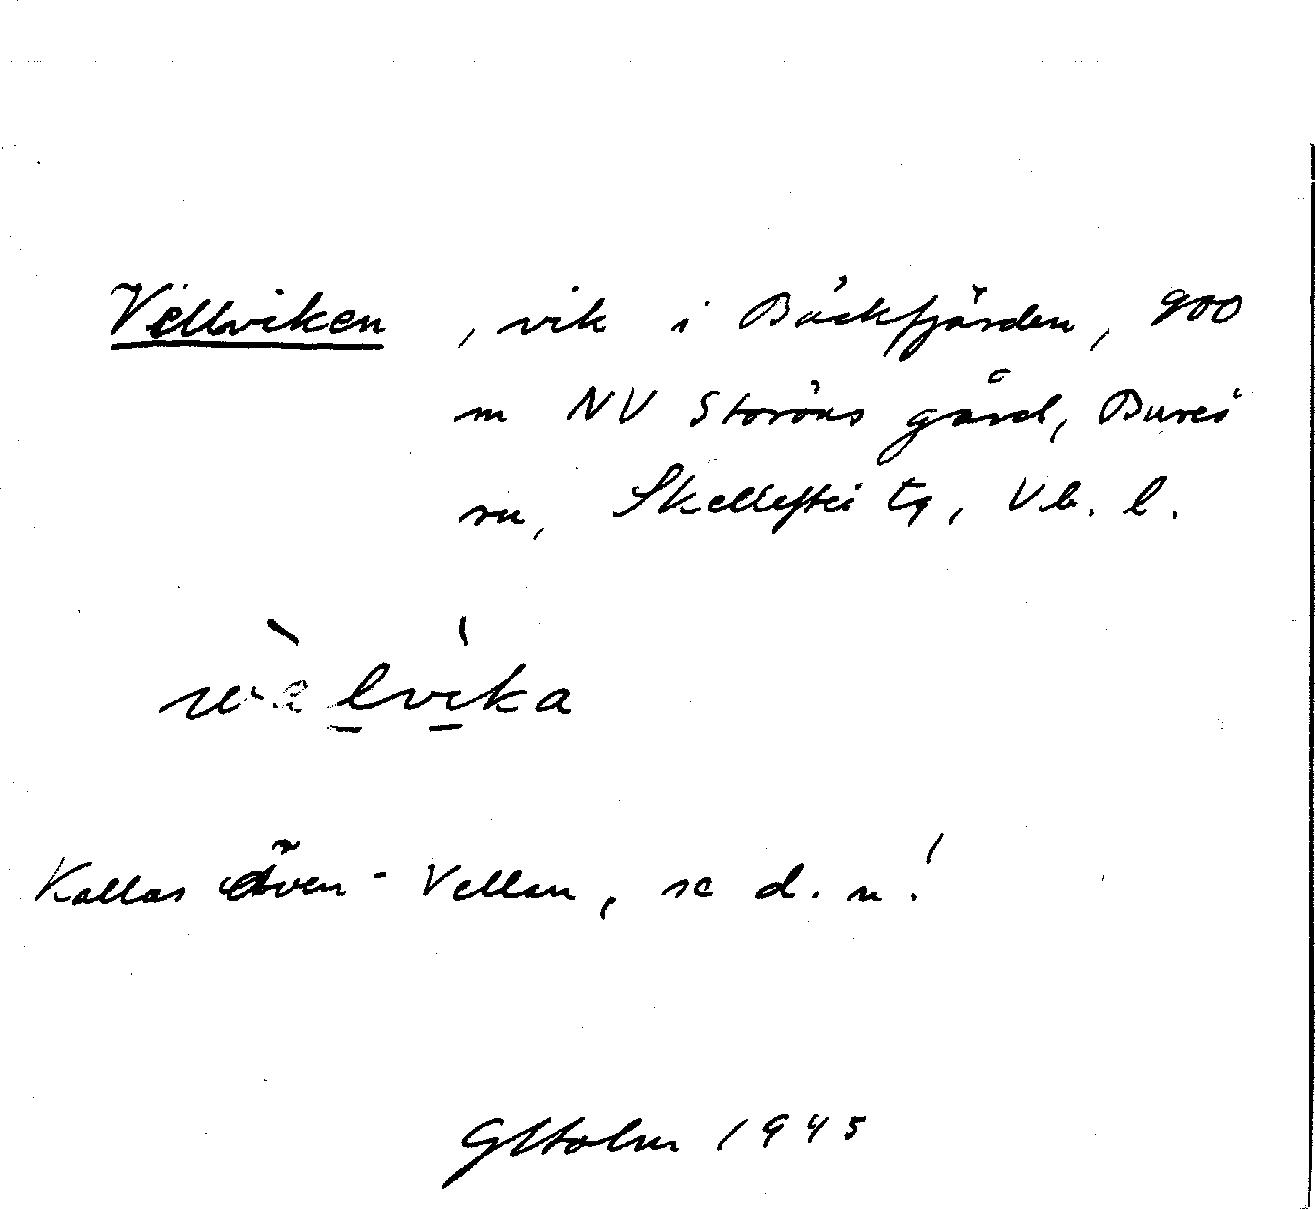 Vellviken, vik i Bäckfjärden, 900
m NV Storöns gård, Bureå
sn, Skellefteå tg, Vb. l.
wèlvìka
Kallas även - Vellan, se d. n!
GHolm 1945